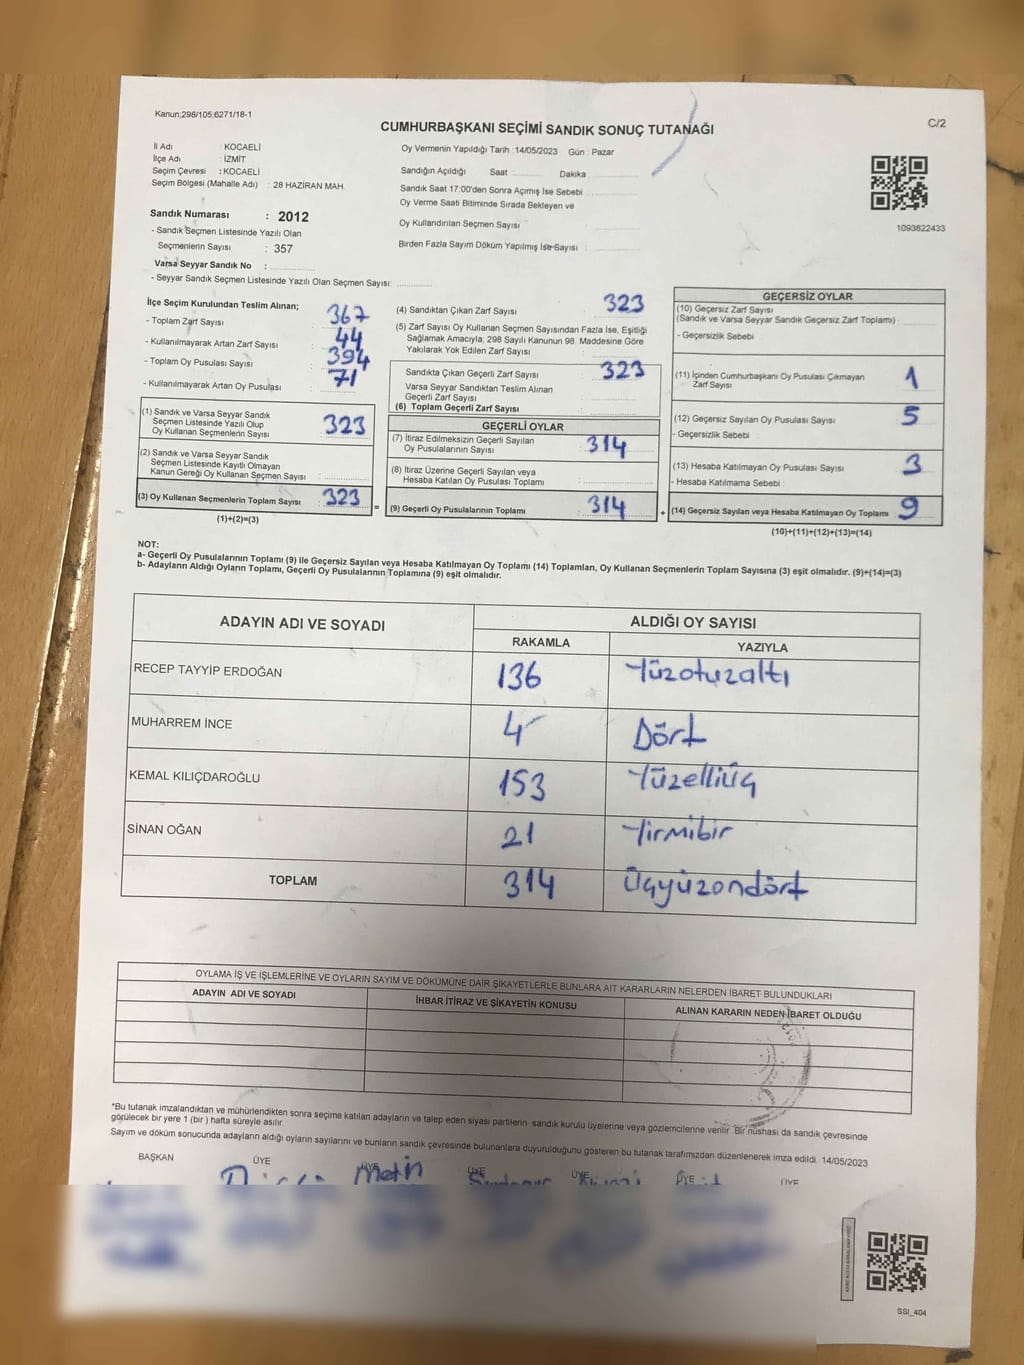 Kanun;298/105,6271/18-1
C/2
CUMHURBAŞKANI SEÇİMİ SANDIK SONUÇ TUTANAĞI
İl Adı : KOCAELİ
İlçe Adı : İZMİT
Seçim Çevresi : KOCAELİ
Seçim Bölgesi (Mahalle Adı) : 28 HAZİRAN MAH.
Sandık Numarası : 2012
- Sandık Seçmen Listesinde Yazılı Olan
Seçmenlerin Sayısı : 357
Varsa Seyyar Sandık No :
- Seyyar Sandık Seçmen Listesinde Yazılı Olan Seçmen Sayısı:
Oy Vermenin Yapıldığı Tarih : 14/05/2023 Gün : Pazar
Sandığın Açıldığı Saat Dakika
Sandık Saat 17:00'den Sonra Açımış İse Sebebi
Oy Verme Saati Bitiminde Sırada Bekleyen ve
Oy Kullandırılan Seçmen Sayısı
Birden Fazla Sayım Döküm Yapılmış İse Sayısı
1093822433
İlçe Seçim Kurulundan Teslim Alınan;
- Toplam Zarf Sayısı : 367
- Kullanılmayarak Artan Zarf Sayısı : 44
- Toplam Oy Pusulası Sayısı : 394
- Kullanılmayarak Artan Oy Pusulası : 71
(1) Sandık ve Varsa Seyyar Sandık
Seçmen Listesinde Yazılı Olup
Oy Kullanan Seçmenlerin Sayısı : 323
(2) Sandık ve Varsa Seyyar Sandık
Seçmen Listesinde Kayıtlı Olmayan
Kanun Gereği Oy Kullanan Seçmen Sayısı :
(3) Oy Kullanan Seçmenlerin Toplam Sayısı : 323
(1)+(2)=(3)
(4) Sandıktan Çıkan Zarf Sayısı : 323
(5) Zarf Sayısı Oy Kullanan Seçmen Sayısından Fazla İse, Eşitliği
Sağlamak Amacıyla; 298 Sayılı Kanunun 98. Maddesine Göre
Yakılarak Yok Edilen Zarf Sayısı :
Sandıkta Çıkan Geçerli Zarf Sayısı : 323
Varsa Seyyar Sandıktan Teslim Alınan
Geçerli Zarf Sayısı :
(6) Toplam Geçerli Zarf Sayısı :
GEÇERLİ OYLAR
(7) İtiraz Edilmeksizin Geçerli Sayılan
Oy Pusulalarının Sayısı : 314
(8) İtiraz Üzerine Geçerli Sayılan veya
Hesaba Katılan Oy Pusulası Toplamı :
= (9) Geçerli Oy Pusulalarının Toplamı : 314
GEÇERSİZ OYLAR
(10) Geçersiz Zarf Sayısı
(Sandık ve Varsa Seyyar Sandık Geçersiz Zarf Toplamı) :
- Geçersizlik Sebebi :
(11) İçinden Cumhurbaşkanı Oy Pusulası Çıkmayan
Zarf Sayısı : 1
(12) Geçersiz Sayılan Oy Pusulası Sayısı : 5
- Geçersizlik Sebebi :
(13) Hesaba Katılmayan Oy Pusulası Sayısı : 3
- Hesaba Katılmama Sebebi :
+ (14) Geçersiz Sayılan veya Hesaba Katılmayan Oy Toplamı : 9
(10)+(11)+(12)+(13)=(14)
NOT:
a- Geçerli Oy Pusulalarının Toplamı (9) ile Geçersiz Sayılan veya Hesaba Katılmayan Oy Toplamı (14) Toplamları, Oy Kullanan Seçmenlerin Toplam Sayısına (3) eşit olmalıdır. (9)+(14)=(3)
b- Adayların Aldığı Oyların Toplamı, Geçerli Oy Pusulalarının Toplamına (9) eşit olmalıdır.
ADAYIN ADI VE SOYADI ALDIĞI OY SAYISI
RAKAMLA YAZIYLA
RECEP TAYYİP ERDOĞAN 136 Yüzotuzaltı
MUHARREM İNCE 4 Dört
KEMAL KILIÇDAROĞLU 153 Yüzelliüç
SİNAN OĞAN 21 Yirmibir
TOPLAM 314 Üçyüzondört
OYLAMA İŞ VE İŞLEMLERİNE VE OYLARIN SAYIM VE DÖKÜMÜNE DAİR ŞİKAYETLERLE BUNLARA AİT KARARLARIN NELERDEN İBARET BULUNDUKLARI
ADAYIN ADI VE SOYADI İHBAR İTİRAZ VE ŞİKAYETİN KONUSU ALINAN KARARIN NEDEN İBARET OLDUĞU
*Bu tutanak imzalandıktan ve mühürlendikten sonra seçime katılan adayların ve talep eden siyasi partilerin sandık kurulu üyelerine veya gözlemcilerine verilir. Bir nüshası da sandık çevresinde
görülecek bir yere 1 (bir ) hafta süreyle asılır.
Sayım ve döküm sonucunda adayların aldığı oyların sayılarını ve bunların sandık çevresinde bulunanlara duyurulduğunu gösteren bu tutanak tarafımızdan düzenlenerek imza edildi. 14/05/2023
BAŞKAN ÜYE ÜYE ÜYE ÜYE ÜYE ÜYE
Metin
SSI_404